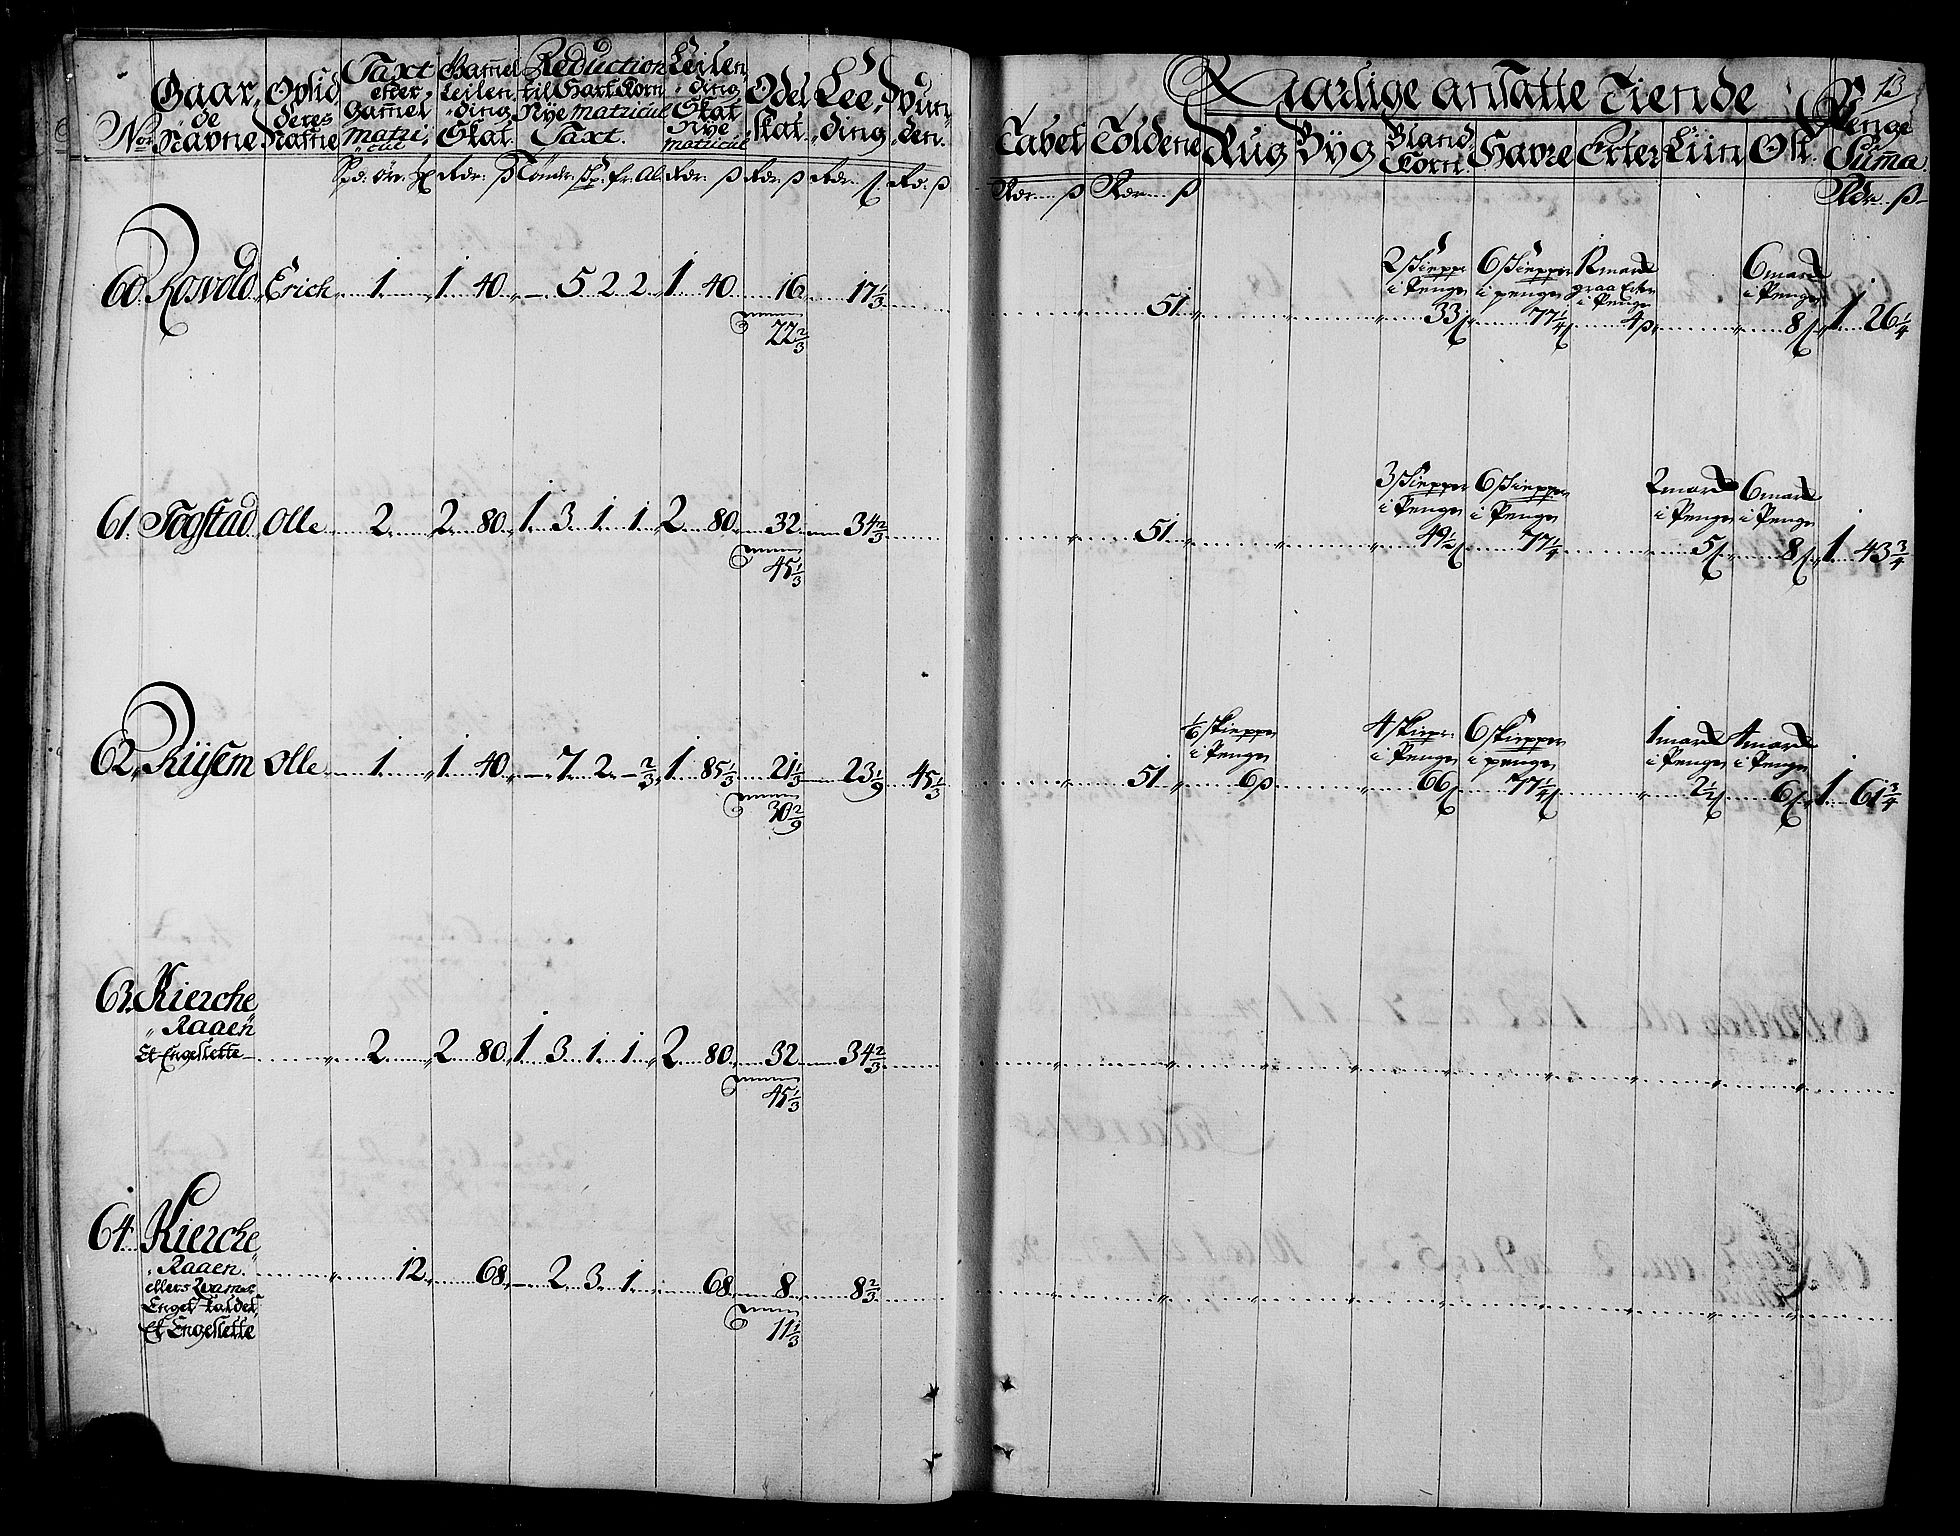 13
No:
Gaardenes Navne
Opsid deres Nafne
Taxt efter Gammel Matricul
Gammel Leilendings Skat
Reduction til Hart Korn Nye Matricul Taxt.
Leilendings Skat Nye matricul
Odel skat
Leeding
Aarlige ansatte Tiende
Rug Byg Bland Korn Havre Erter Liin
Penge Summa
60. Erich 1. 1 40 — 5 2 2 1 40 16 17 1/3
22 2/3
51
2 skiepper i Penge 33
6 skiepper i penge 77 1/4
graa Erter i Penge 4
6 mark i Penge 8
1 26 1/4
61. Togstad Olle 2 2 80 1 3 1 1 2 80 32 34 2/3
45 1/3
51
3 skiepper i Penge 49 1/2
6 skiepper i Penge 77 1/4
2 mark i Penge 5
6 mark i Penge 8
1 43 3/4
62. Riisem Olle 1 1 40 — 7 2 — 2/3 1 85 1/3 21 1/3 23 1/9 45 1/3
30 2/9
51
1/6 skiepper i Penge 6
4 skiepper i Penge 66
6 skiepper i penge 77 1/4
1 mark i Penge 2 1/2
4 mark i Penge 6
1 61 3/4
63. Kierche
Raaen
Et Engeslette 2 2 80 1 3 1 1 2 80 32 34 2/3
45 1/3
64. Kierche
Raaen 12 68 — 2 3 1 68 8 8 2/3
11 1/3
ellers
Engeskaldet
Et Engeslette